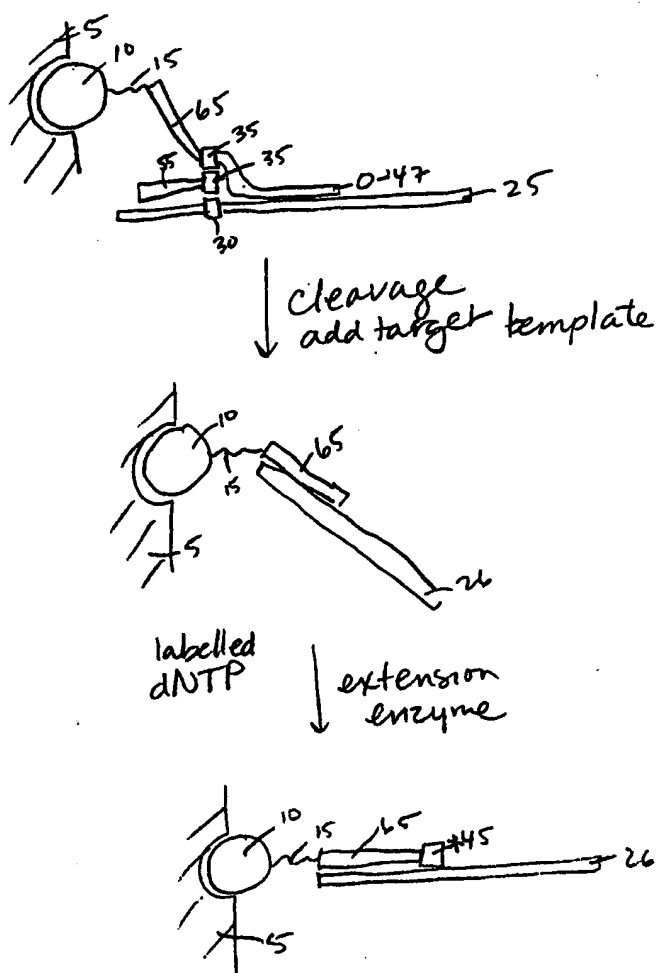 5
10
15
65
35
55
35
0-47
25
30
cleavage
add target template
10
65
15
5
26
labelled
dNTP
extension
enzyme
10
15
65
*45
26
5